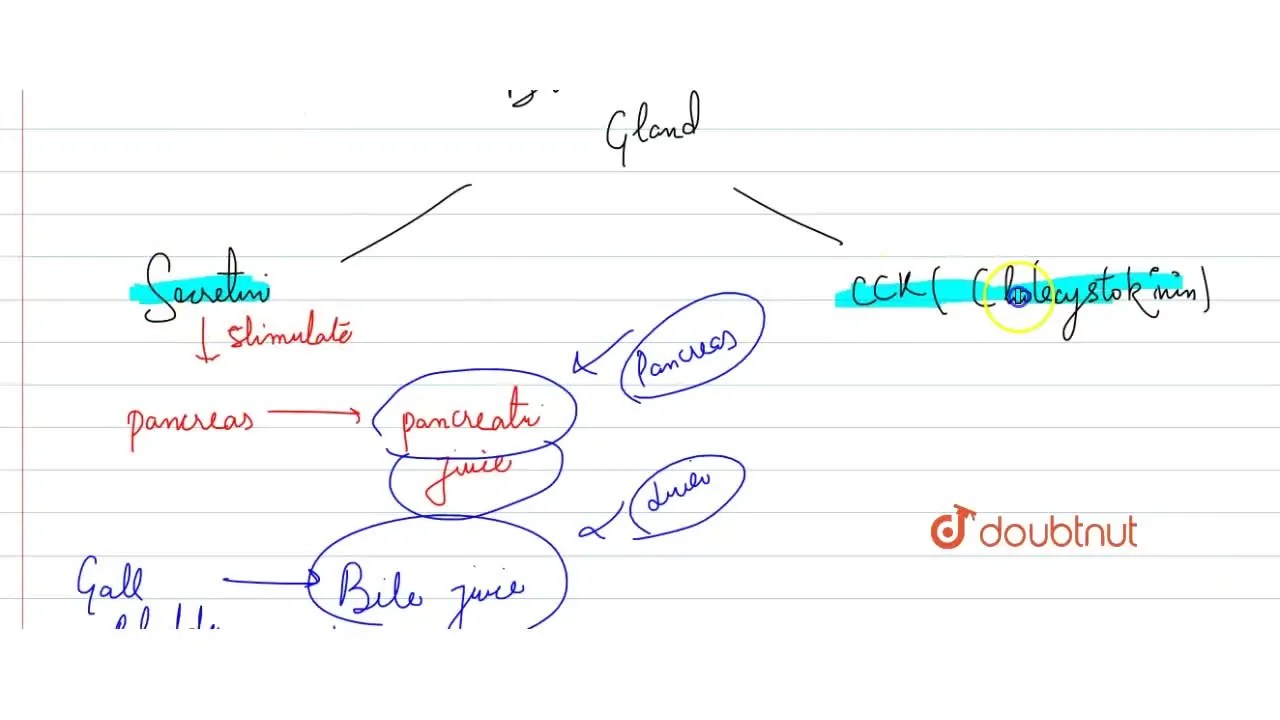 Gland
Secretin
CCK (Cholecystokinin)
↓ stimulate
Pancreas
pancreas → pancreatic
juice
Liver
doubtnut
Gall → Bile juice